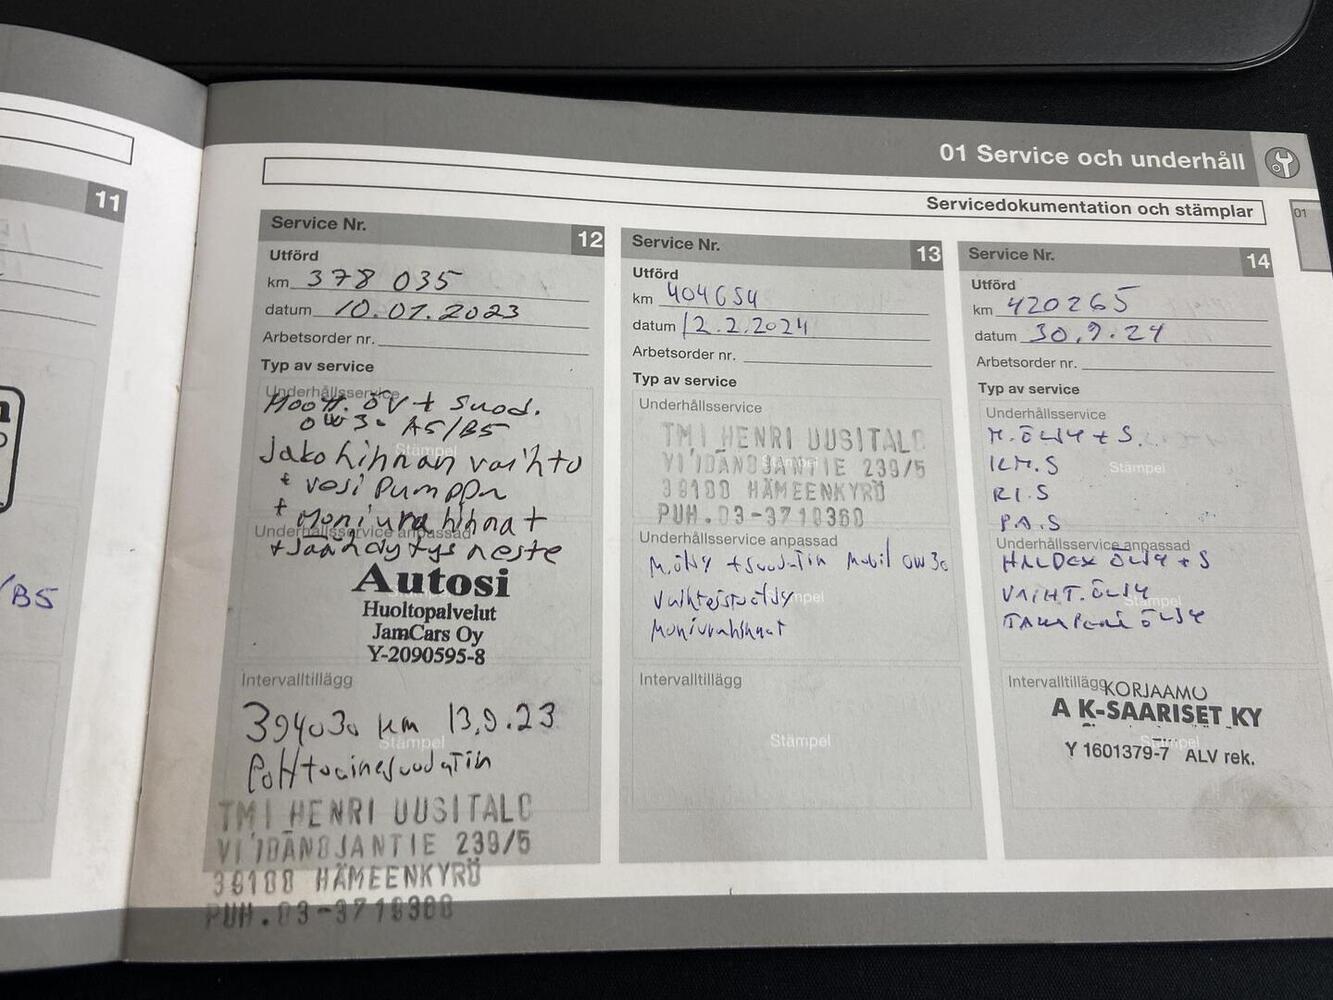 01 Service och underhåll
Servicedokumentation och stämplar
01
11
/B5
Service Nr. 12
Utförd
km 378 035
datum 10.01.2023
Arbetsorder nr.
Typ av service
Underhållsservice
Moott. öV + Suod.
0W30 A5/B5
Jakohihnan vaihto
Stämpel
+ vesi pumppu
+ Moniura hihnat
Underhållsservice anpassad
+ Jäähdytys neste
Autosi
Huoltopalvelut
JamCars Oy
Y-2090595-8
Intervalltillägg
394030 km 13.9.23
Stämpel
Polttoainesuodatin
TMI HENRI UUSITALO
39100 HÄMEENKYRÖ
Service Nr. 13
Utförd
km 404654
datum 12.2.2024
Arbetsorder nr.
Typ av service
Underhållsservice
TMI HENRI UUSITALO
Stämpel
39100 HÄMEENKYRÖ
PUH.03-3710360
Underhållsservice anpassad
M.öljy + suodatin Mobil 0W30
Vaihteistoöljy
Moniurahihnat
Intervalltillägg
Stämpel
Service Nr. 14
Utförd
km 420265
datum 30.9.24
Arbetsorder nr.
Typ av service
Underhållsservice
M.ÖLJY + S.
KM.S
Stämpel
RI.S
PA.S
Underhållsservice anpassad
HALDEX ÖLJY + S
VAIHT.ÖLJY
Stämpel
ÖLJY
Intervalltillägg
KORJAAMO
A K-SAARISET KY
Stämpel
Y 1601379-7 ALV rek.